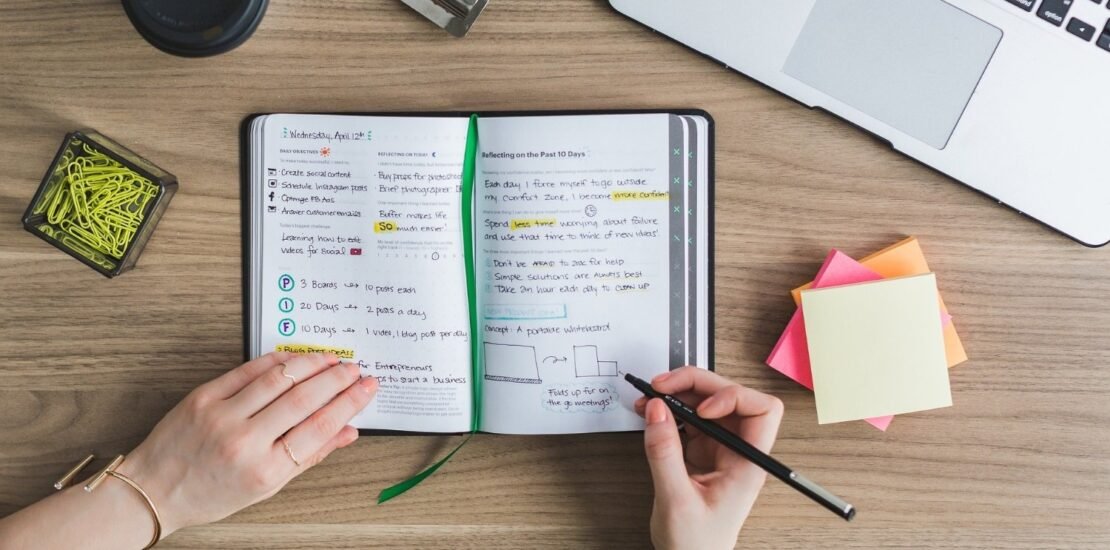 Wednesday, April 12th
DAILY OBJECTIVES
To make today successful, I need to
Create social content
Schedule Instagram posts
FB Ads
Answer customer emails
Today's biggest challenge
Learning how to edit
videos for social
REFLECTING ON TODAY
Buy props for photoshoot
Brief photographer
One important thing I learned today
Buffer makes life
SO much easier!
My level of confidence that I'm on the
right track
P 3 Boards → 10 posts each
I 20 Days → 2 posts a day
F 10 Days → 1 video, 1 blog post per day
POST IDEAS
for Entrepreneurs
to start a business
Reflecting on the Past 10 Days
Each day I force myself to go outside
my comfort zone, I become more confident
Spend less time worrying about failure
and use that time to think of new ideas!
1 Don't be AFRAID to ask for help
2 Simple solutions are ALWAYS best
3 Take an hour each day to CLEAN UP
Concept: A portable whiteboard
Folds up for on
the go meetings!
option